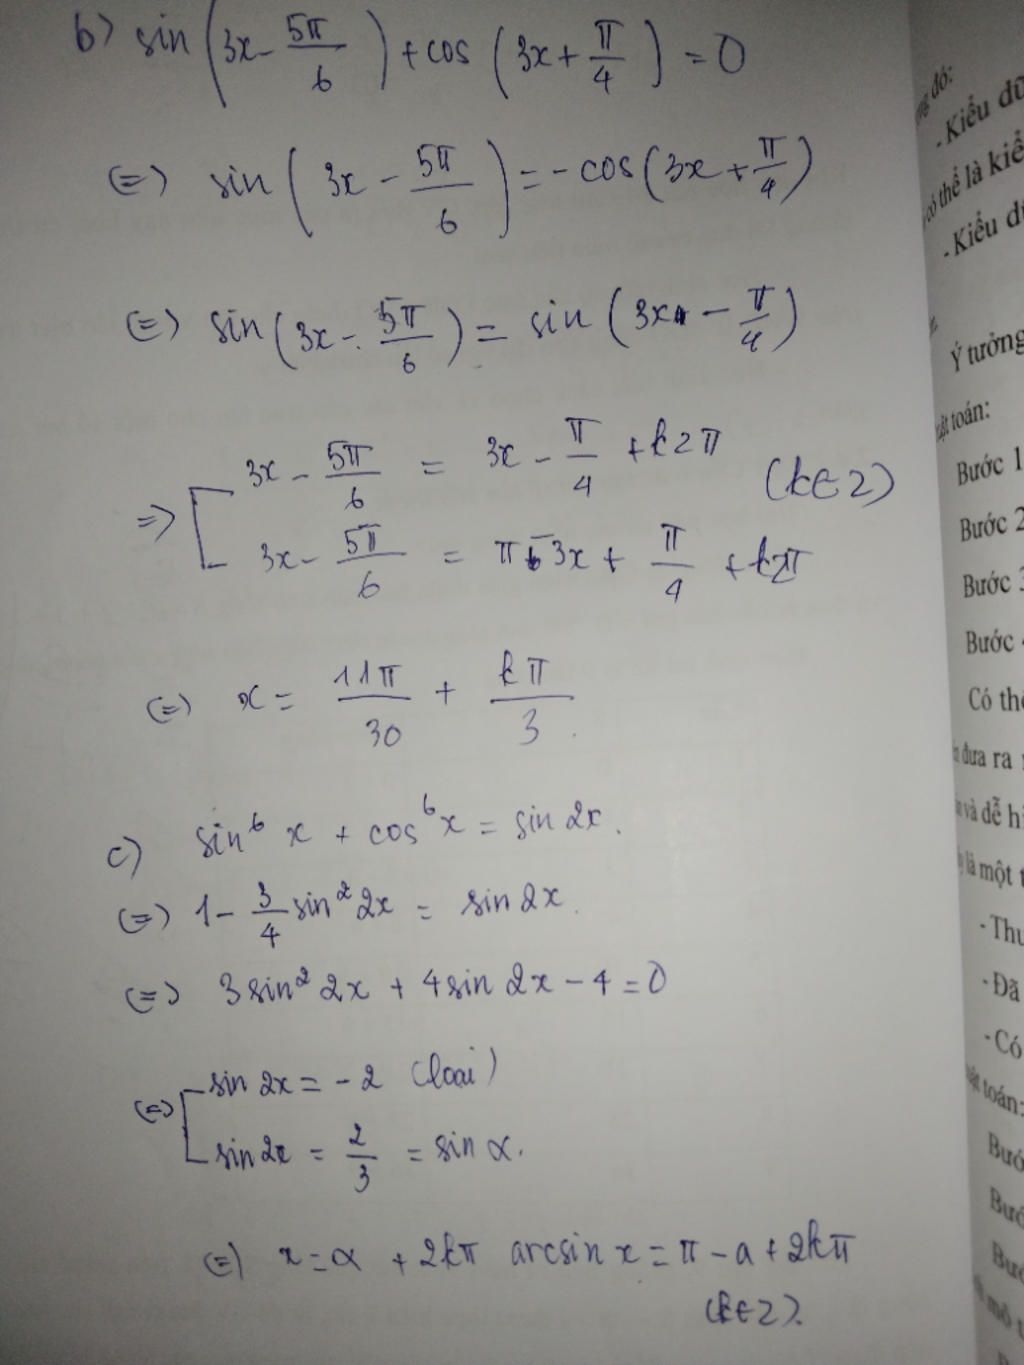 b) sin(3x - 5π/6) + cos(3x + π/4) = 0
(=) sin(3x - 5π/6) = -cos(3x + π/4)
(=) sin(3x - 5π/6) = sin(3x - π/4)
=> [ 3x - 5π/6 = 3x - π/4 + k2π
3x - 5π/6 = π - 3x + π/4 + k2π (k∈Z)
(=) x = 11π/30 + kπ/3
c) sin⁶x + cos⁶x = sin2x.
(=) 1 - 3/4 sin²2x = sin2x.
(=) 3sin²2x + 4sin2x - 4 = 0
(=) [ sin2x = -2 (loại)
sin2x = 2/3 = sin α.
(=) x = α + 2kπ arcsin x = π - a + 2kπ
(k∈Z).
đó:
- Kiểu dữ
có thể là kiể
- Kiểu d
Ý tưởng
toán:
Bước 1
Bước 2
Bước 3
Bước
Có thể
đưa ra
và dễ h
là một t
- Thu
- Đã
- Có
toán:
Bướ
Bướ
Bướ